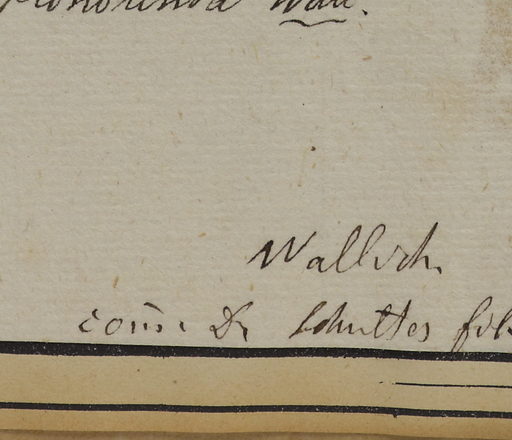 Wall.
Wallich.
com̄. Dr Schultes fil.